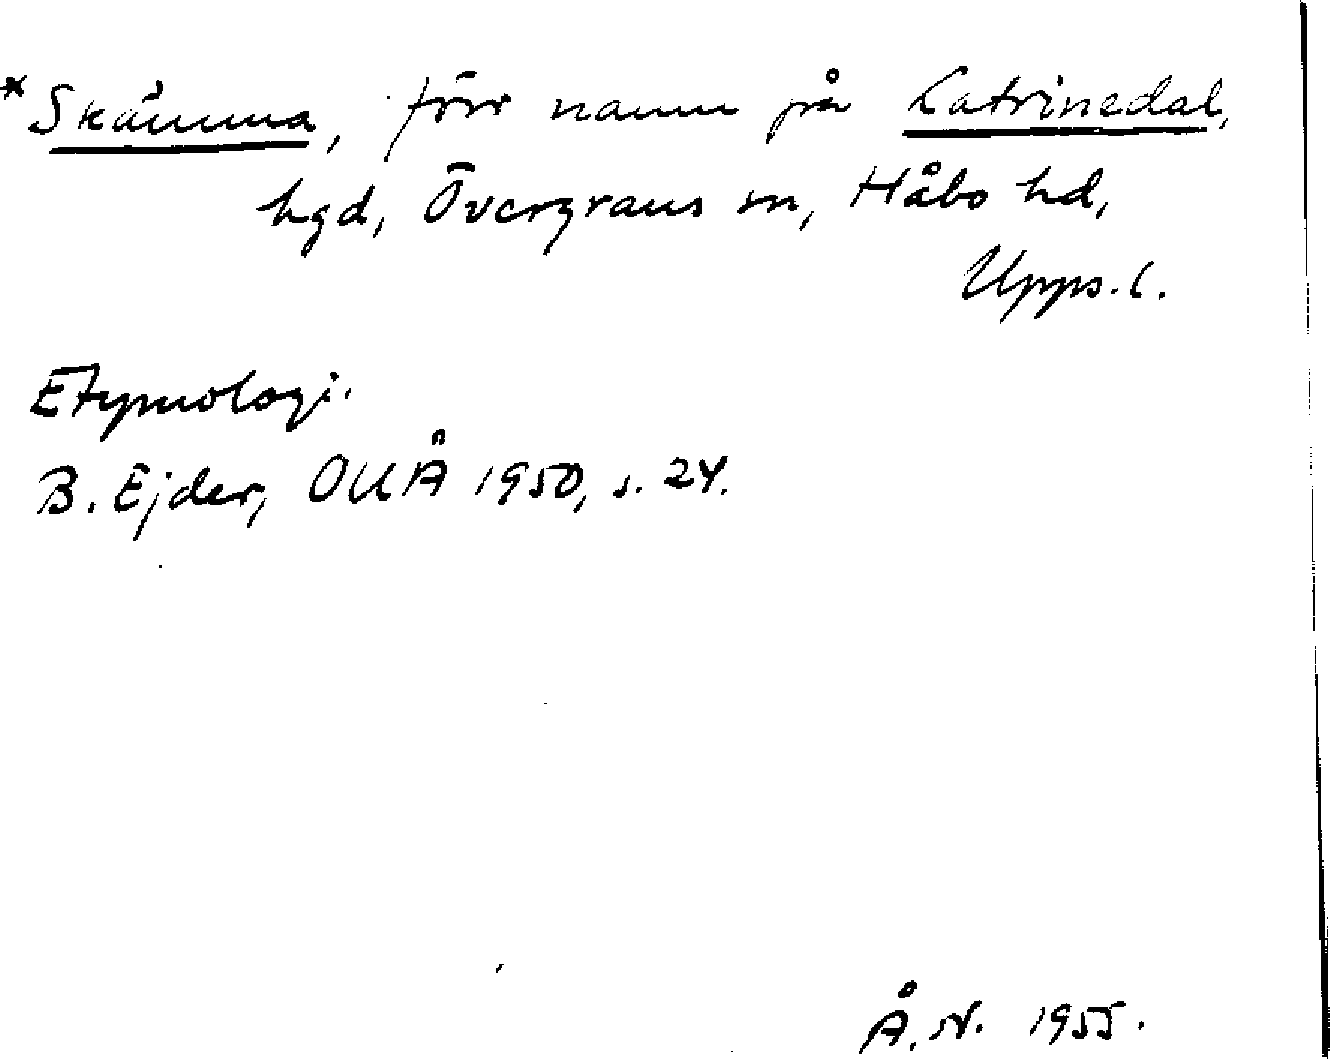 *Skämma, förr namn på Katrinedal,
hgd, Övergrans sn, Håbo hd,
Upps. l.
Etymologi.
B. Ejder, OUÅ 1950, s. 24.
Å. N. 1955.